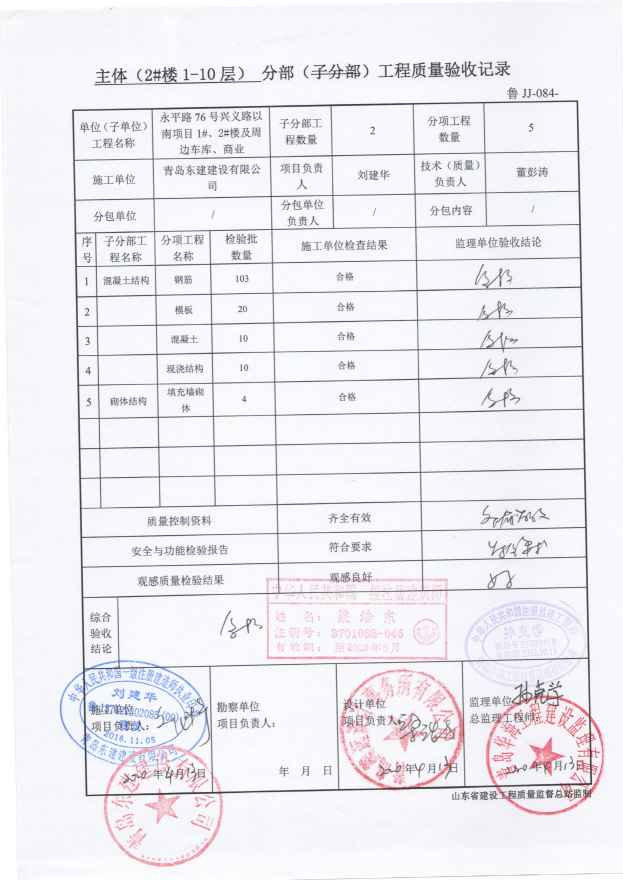 主体（2#楼 1-10 层） 分部（子分部）工程质量验收记录
鲁 JJ-084-
单位（子单位）工程名称 永平路 76 号兴义路以南项目 1#、2#楼及周边车库、商业 子分部工程数量 2 分项工程数量 5
施工单位 青岛东建建设有限公司 项目负责人 刘建华 技术（质量）负责人 董彭涛
分包单位 / 分包单位负责人 / 分包内容 /
序号 子分部工程名称 分项工程名称 检验批数量 施工单位检查结果 监理单位验收结论
1 混凝土结构 钢筋 103 合格 合格
2 模板 20 合格 合格
3 混凝土 10 合格 合格
4 现浇结构 10 合格 合格
5 砌体结构 填充墙砌体 4 合格 合格
质量控制资料 齐全有效
安全与功能检验报告 符合要求
观感质量检验结果 观感良好 好
综合验收结论 合格
中华人民共和国一级注册建筑师
姓 名：
注册号：3701083-046
有效期：
中华人民共和国一级注册建造师执业印章
刘建华
2018.11.05
青岛东建建设有限公司
施工单位
项目负责人：
2020 年 4 月 13 日
勘察单位
项目负责人：
年 月 日
设计单位
项目负责人：
2020 年 4 月 13 日
监理单位
总监理工程师：
2020 年 4 月 13 日
青岛东建建设有限公司
山东省建设工程质量监督总站监制